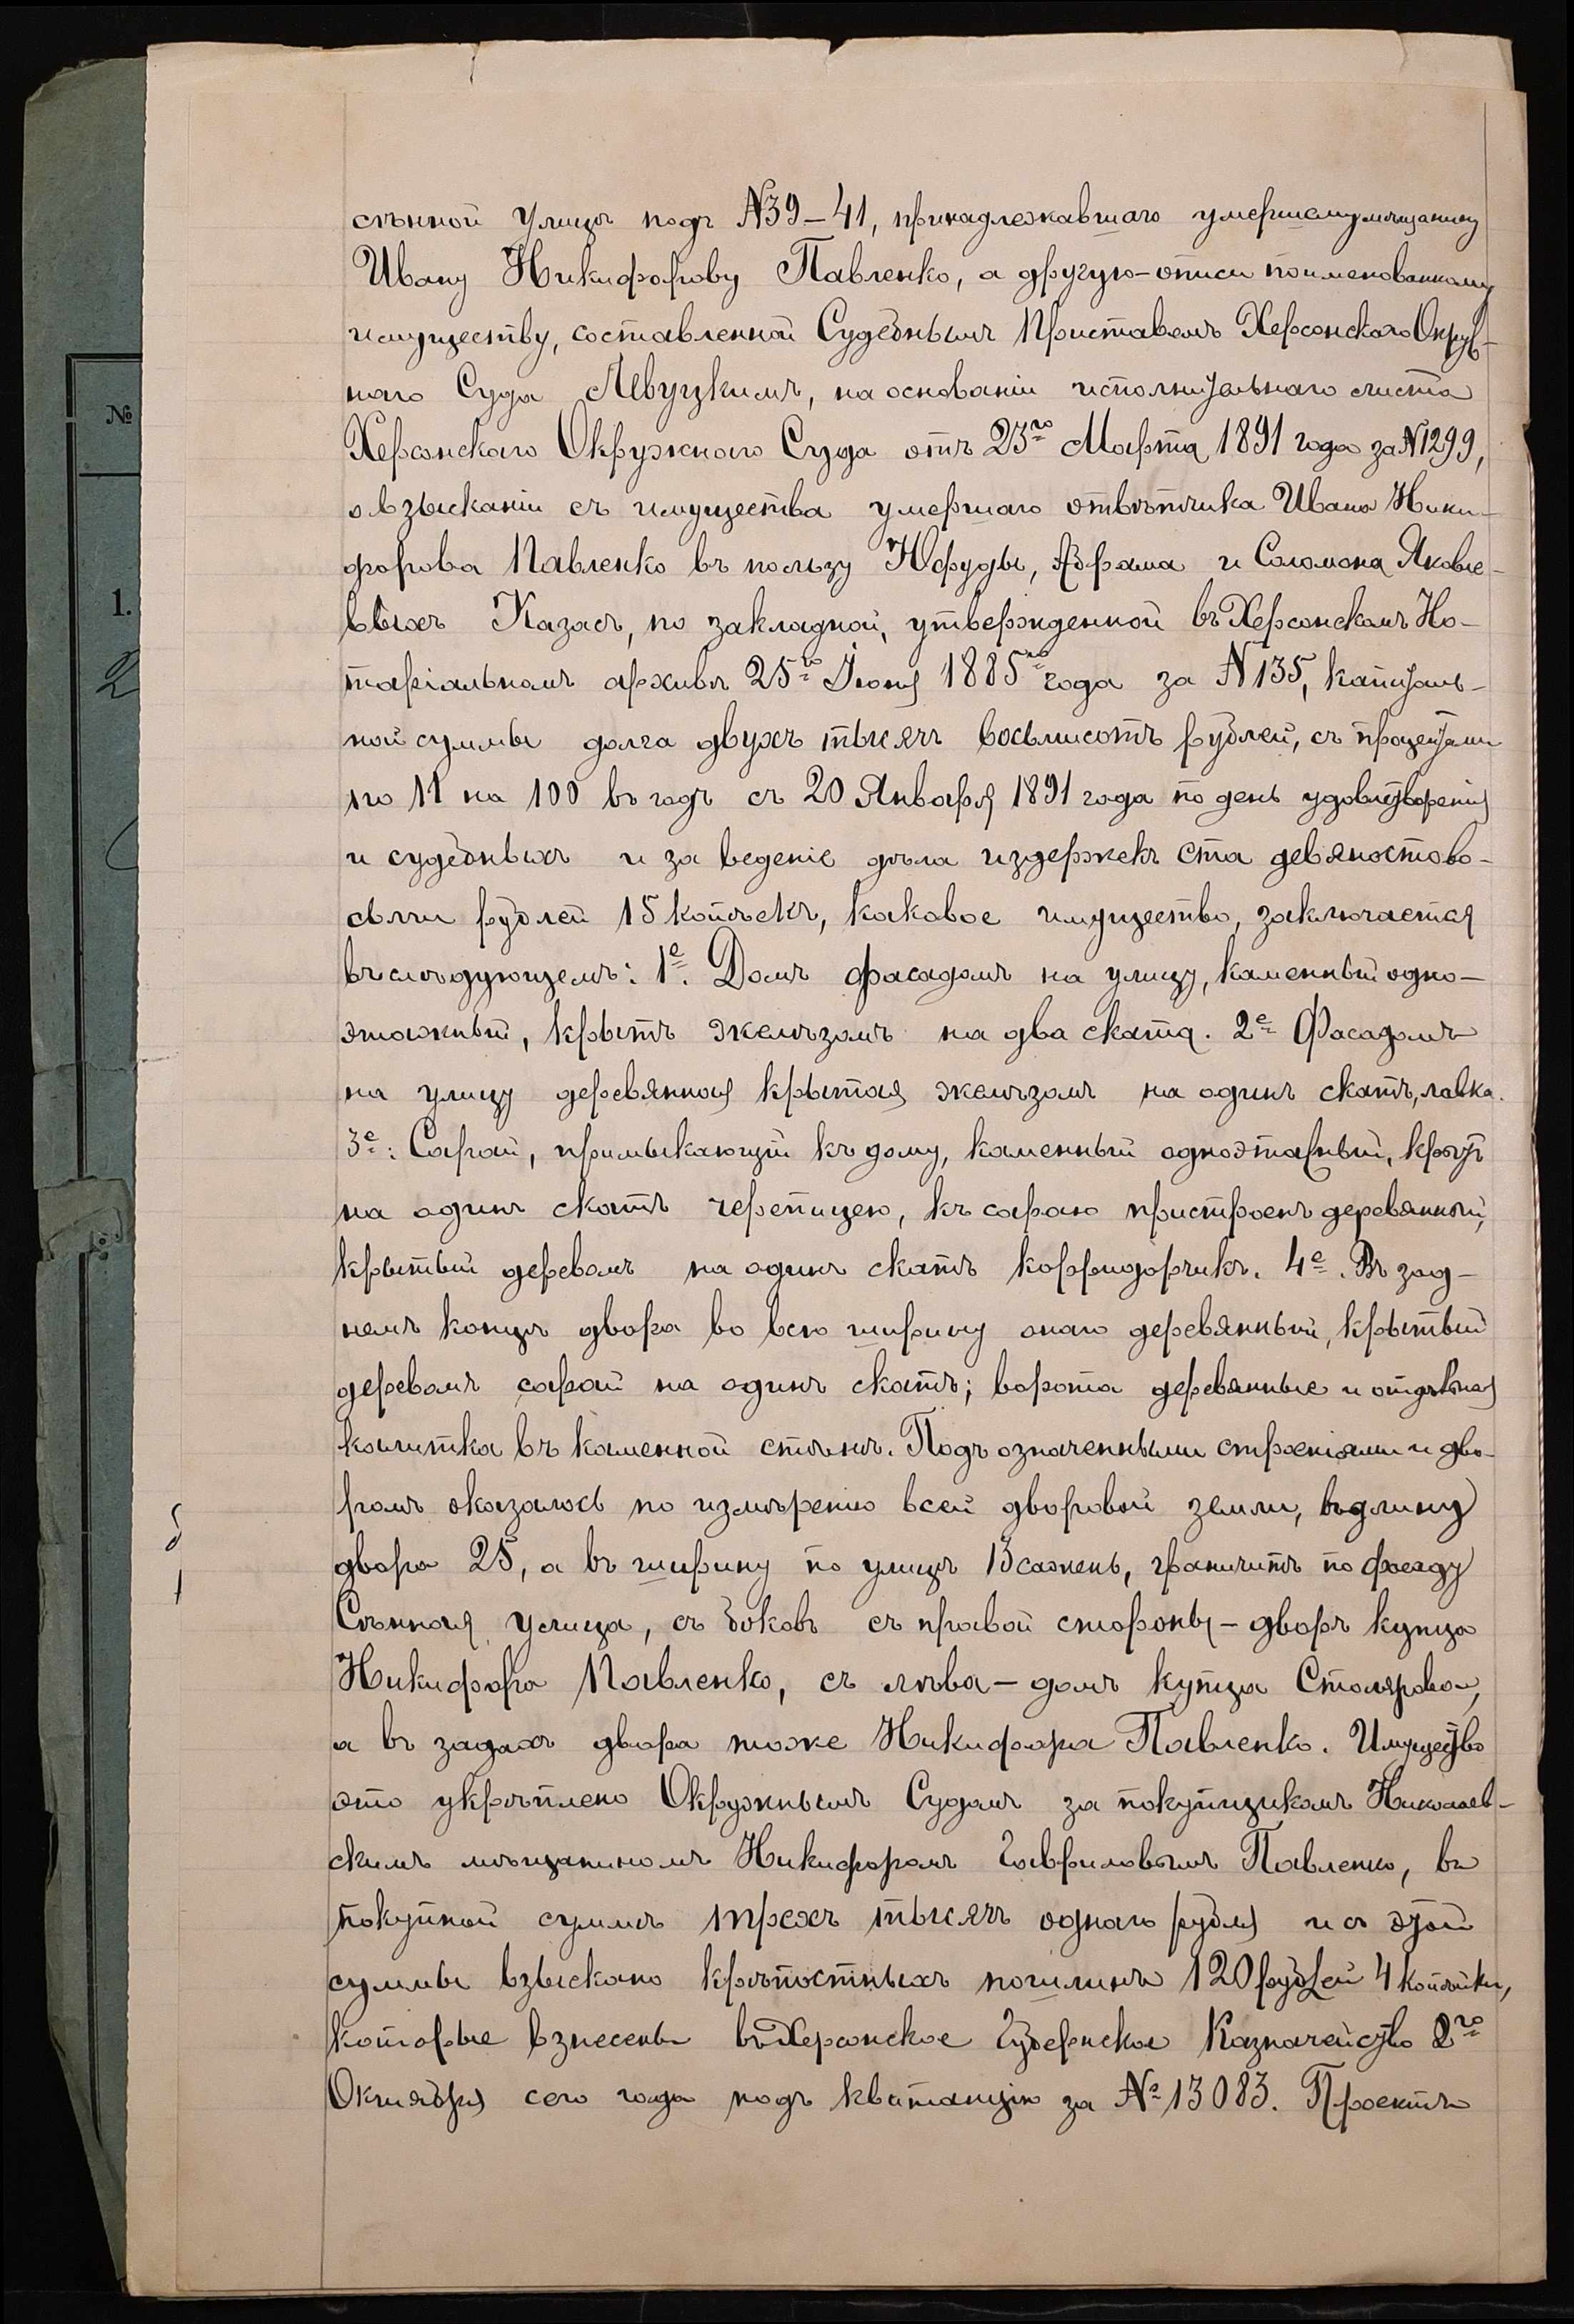 №
1.
2
сѣнной улицѣ подъ №39–41, принадлежавшаго умершему мѣщанину
Ивану Никифорову Павленко, а другую–описи поименованному
имуществу, составленной Судебнымъ Приставомъ Херсонскаго Окруж-
наго Суда Левуцкимъ, на основаніи исполнительнаго листа
Херсонскаго Окружнаго Суда отъ 23го Марта 1891 года за №1299,
о взысканіи съ имущества умершаго отвѣтчика Ивана Ники-
форова Павленко въ пользу Юфуды, Абрама и Соломона Яковле-
выхъ Казасъ, по закладной, утвержденной въ Херсонскомъ Но-
таріальномъ архивѣ 25го Іюня 1885го года за №135, капиталь-
ной суммы долга двухъ тысячъ восьмисотъ рублей, съ процентами
по 11 на 100 въ годъ съ 20 Января 1891 года по день удовлетворенія
и судебныхъ и за веденіе дѣла издержекъ ста девяносто во-
сьми рублей 15 копѣекъ, каковое имущество, заключается
въ слѣдующемъ: 1е. Домъ фасадомъ на улицу, каменный одно-
этажный, крытъ желѣзомъ на два ската. 2е Фасадомъ
на улицу деревянная крытая желѣзомъ на одинъ скатъ, лавка.
3е: Сарай, примыкающій къ дому, каменный одноэтажный, крытъ
на одинъ скатъ черепицею, къ сараю пристроенъ деревянный,
крытый деревомъ на одинъ скатъ корридорчикъ. 4е. Въ зад-
немъ концѣ двора во всю ширину онаго деревянный, крытый
деревомъ сарай на одинъ скатъ; ворота деревянные и отдѣльная
калитка въ каменной стѣнѣ. Подъ означенными строеніями и дво-
ромъ оказалось по измѣренію всей дворовой земли, въ длину
двора 25, а въ ширину по улицѣ 13 сажень, граничитъ по фасаду
Сѣнная улица, съ боковъ съ правой стороны – дворъ купца
Никифора Павленко, съ лѣва – домъ купца Столярова,
а въ задахъ двора тоже Никифора Павленко. Имущество
это укрѣплено Окружнымъ Судомъ за покупщикомъ Николаев-
скимъ мѣщаниномъ Никифоромъ Гавриловымъ Павленко, въ
покупной суммѣ трехъ тысячъ одного рубля и съ этой
суммы взыскано крѣпостныхъ пошлинъ 120 рублей 4 копѣйки,
которые взнесены въ Херсонское Губернское Казначейство 2го
Октября сего года подъ квитанцію за №13083. Проектъ